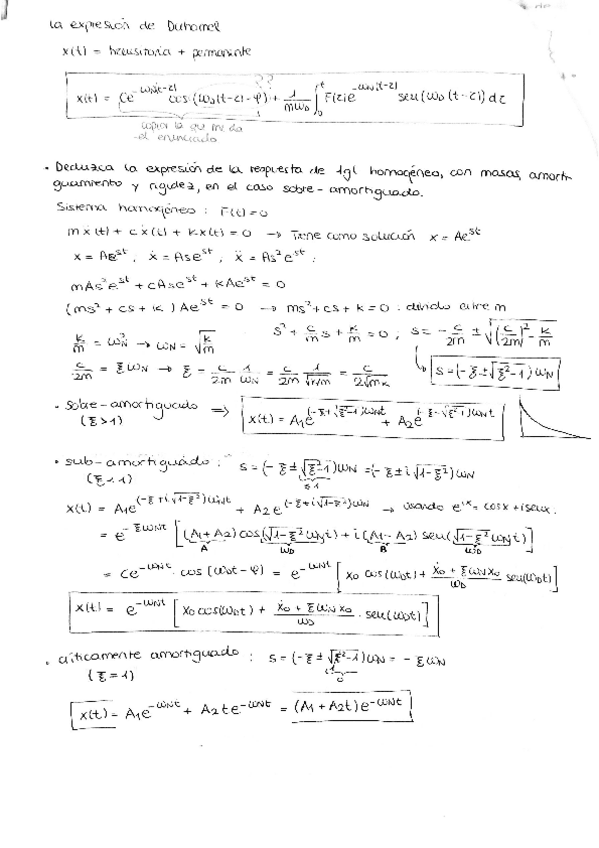 la expresión de Duhamel
x(t) = transitoria + permanente
??
x(t) = Ce^{-ω_N(t-z)} cos(ω_D(t-z)-φ) + \frac{1}{mω_D} ∫_0^t F(z)e^{-ω_N(t-z)} sen(ω_D(t-z)) dz
copiar la que me da
el enunciado
• Deduzca la expresión de la respuesta de 1gl homogéneo, con masas, amorti-
guamiento y rigidez, en el caso sobre-amortiguado.
Sistema homogéneo : F(t)=0
mẍ(t) + cẋ(t) + kx(t) = 0 → Tiene como solución x = Ae^{st}
x = Ae^{st}, ẋ = Ase^{st}, ẍ = As²e^{st} ;
mAs²e^{st} + cAse^{st} + kAe^{st} = 0
(ms² + cs + k) Ae^{st} = 0 → ms² + cs + k = 0 : divido entre m
\frac{k}{m} = ω_N² → ω_N = \sqrt{\frac{k}{m}} s² + \frac{c}{m}s + \frac{k}{m} = 0 ; s = -\frac{c}{2m} ± \sqrt{(\frac{c}{2m})² - \frac{k}{m}}
\frac{c}{2m} = ξω_N → ξ = \frac{c}{2m} \frac{1}{ω_N} = \frac{c}{2m} \frac{1}{\sqrt{k/m}} = \frac{c}{2\sqrt{mk}} s = (-ξ ± \sqrt{ξ²-1}) ω_N
• Sobre-amortiguado ⇒ x(t) = A₁e^{(-ξ+\sqrt{ξ²-1})ω_N t} + A₂e^{(-ξ-\sqrt{ξ²-1})ω_N t}
(ξ>1)
• sub-amortiguado : s = (-ξ ± \sqrt{ξ²-1})ω_N = (-ξ ± i\sqrt{1-ξ²})ω_N
(ξ<1) <1
x(t) = A₁e^{(-ξ+i\sqrt{1-ξ²})ω_N t} + A₂e^{(-ξ+i\sqrt{1-ξ²})ω_N t} → usando e^{ix} = cosx + isenx.
= e^{-ξω_N t} [(A₁+A₂) cos(\sqrt{1-ξ²} ω_N t) + i(A₁-A₂) sen(\sqrt{1-ξ²} ω_N t)]
A ω_D B ω_D
= Ce^{-ω_N t} · cos(ω_D t - φ) = e^{-ω_N t} [x₀ cos(ω_D t) + \frac{ẋ₀ + ξω_N x₀}{ω_D} sen(ω_D t)]
x(t) = e^{-ω_N t} [x₀ cos(ω_D t) + \frac{ẋ₀ + ξω_N x₀}{ω_D} · sen(ω_D t)]
• críticamente amortiguado : s = (-ξ ± \sqrt{ξ²-1})ω_N = -ξω_N
(ξ=1) 0
x(t) = A₁e^{-ω_N t} + A₂te^{-ω_N t} = (A₁ + A₂t)e^{-ω_N t}